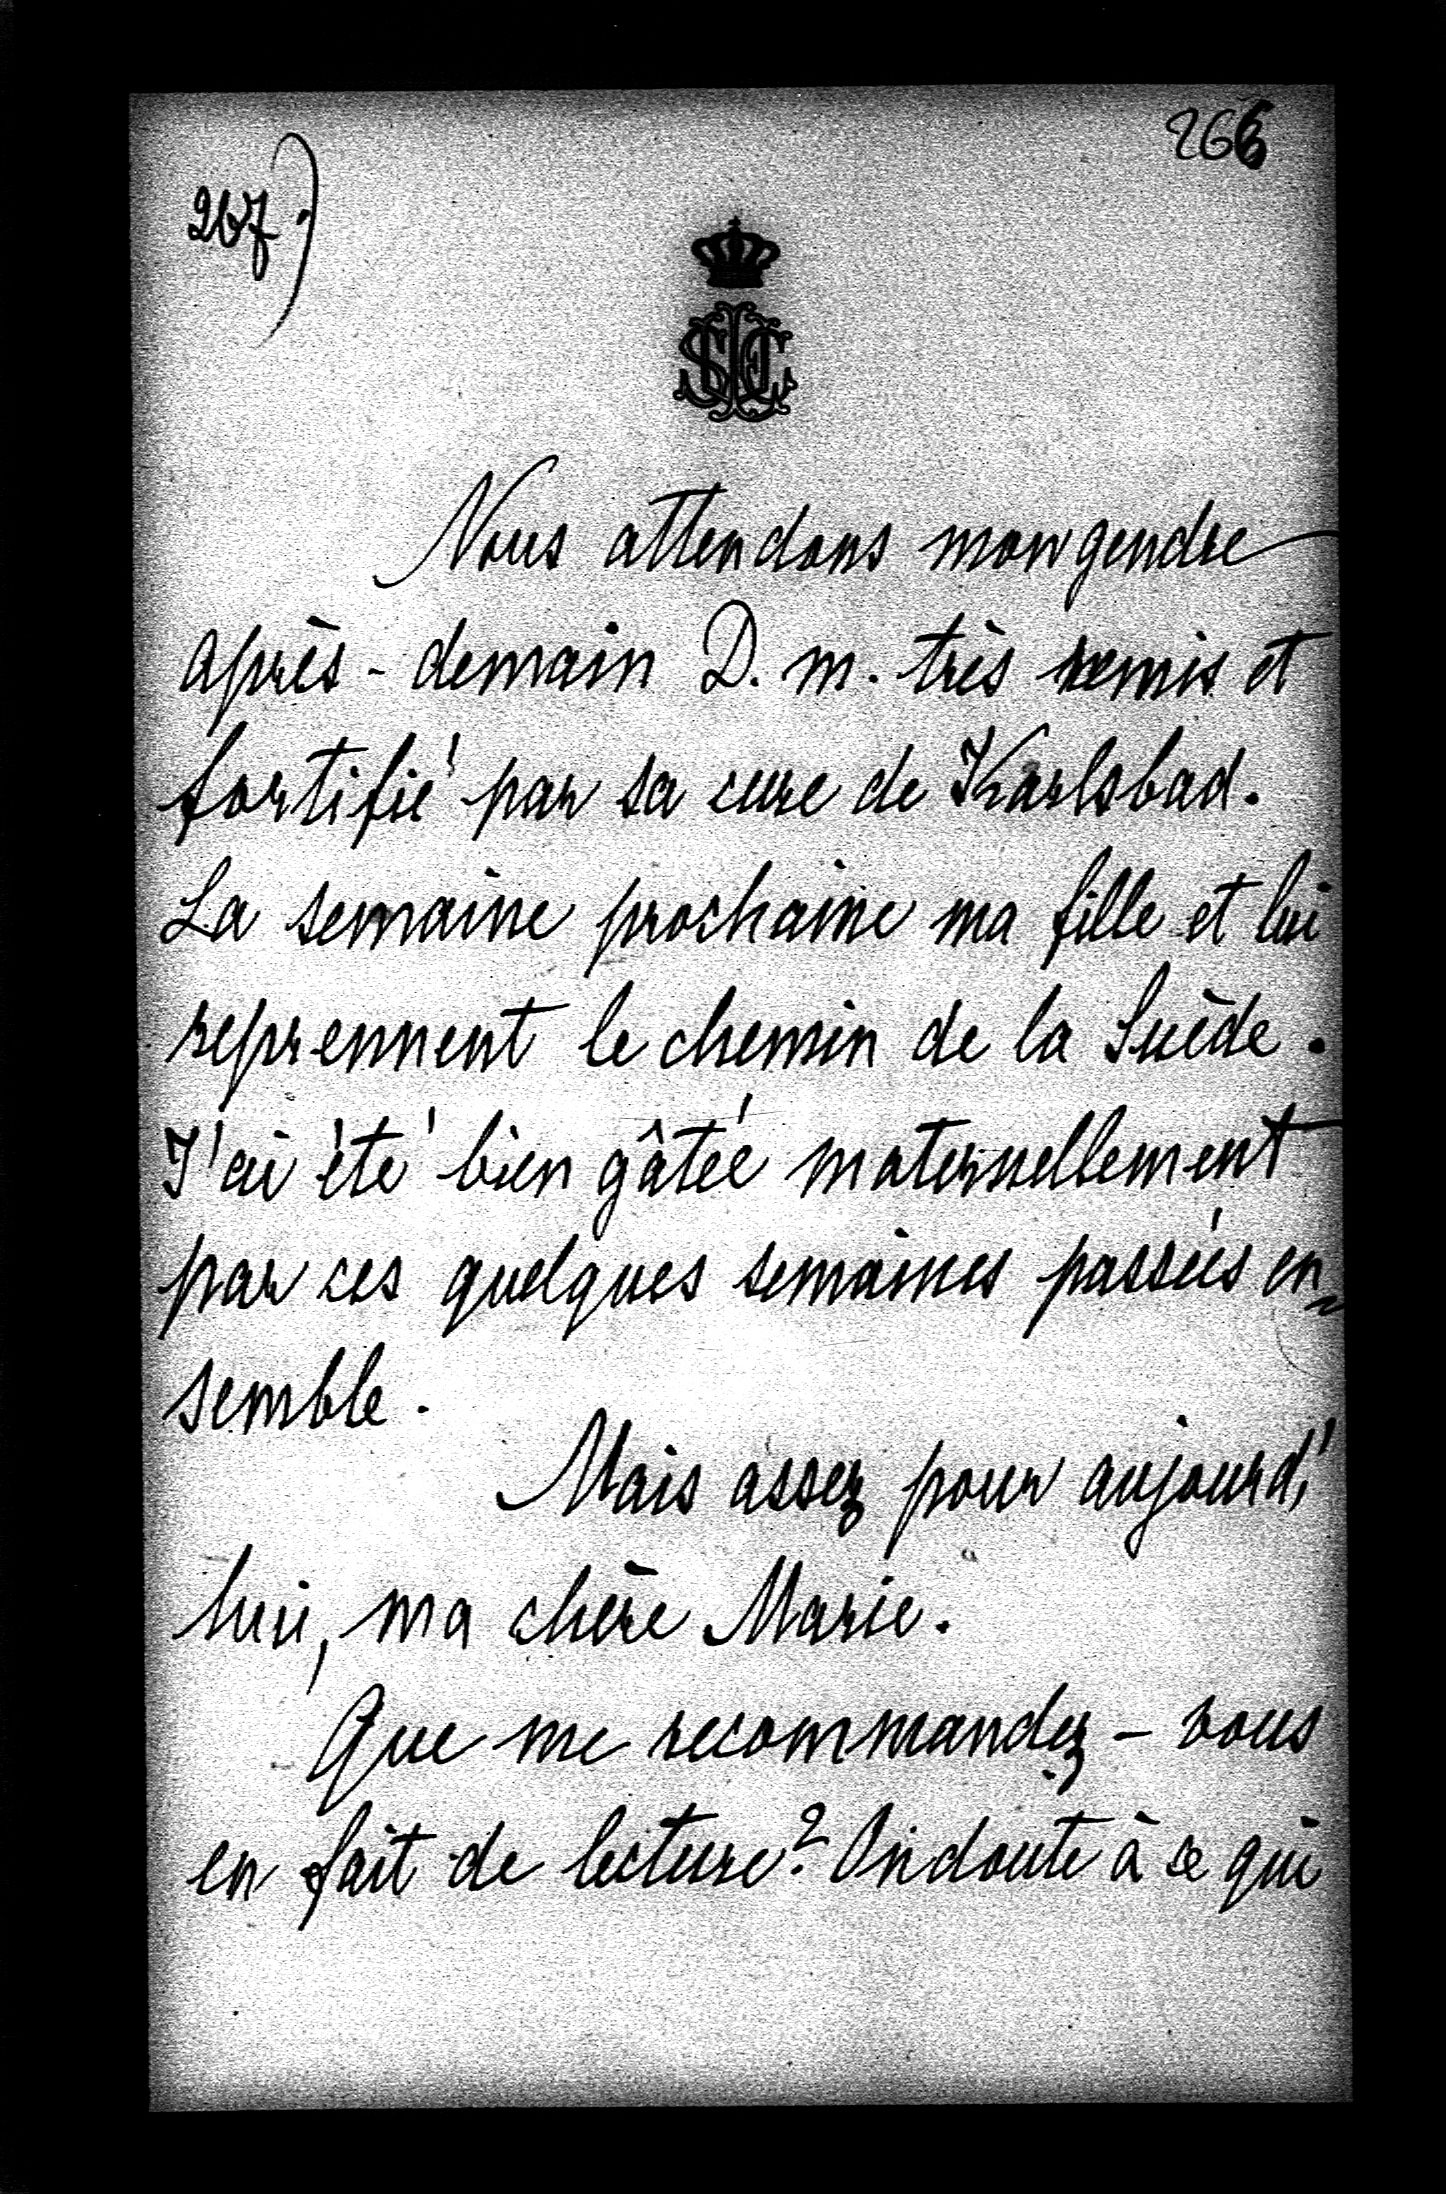 266
267.)
Nous attendons mon gendre
après-demain D. m. très remis et
fortifié par sa cure de Karlsbad.
La semaine prochaine ma fille et lui
reprennent le chemin de la Suède.
J'ai été bien gâtée maternellement
par ces quelques semaines passées en-
semble.
Mais assez pour aujourd'
hui, ma chère Marie.
Que me recommandez-vous
en fait de lecture? On doute à ce qui